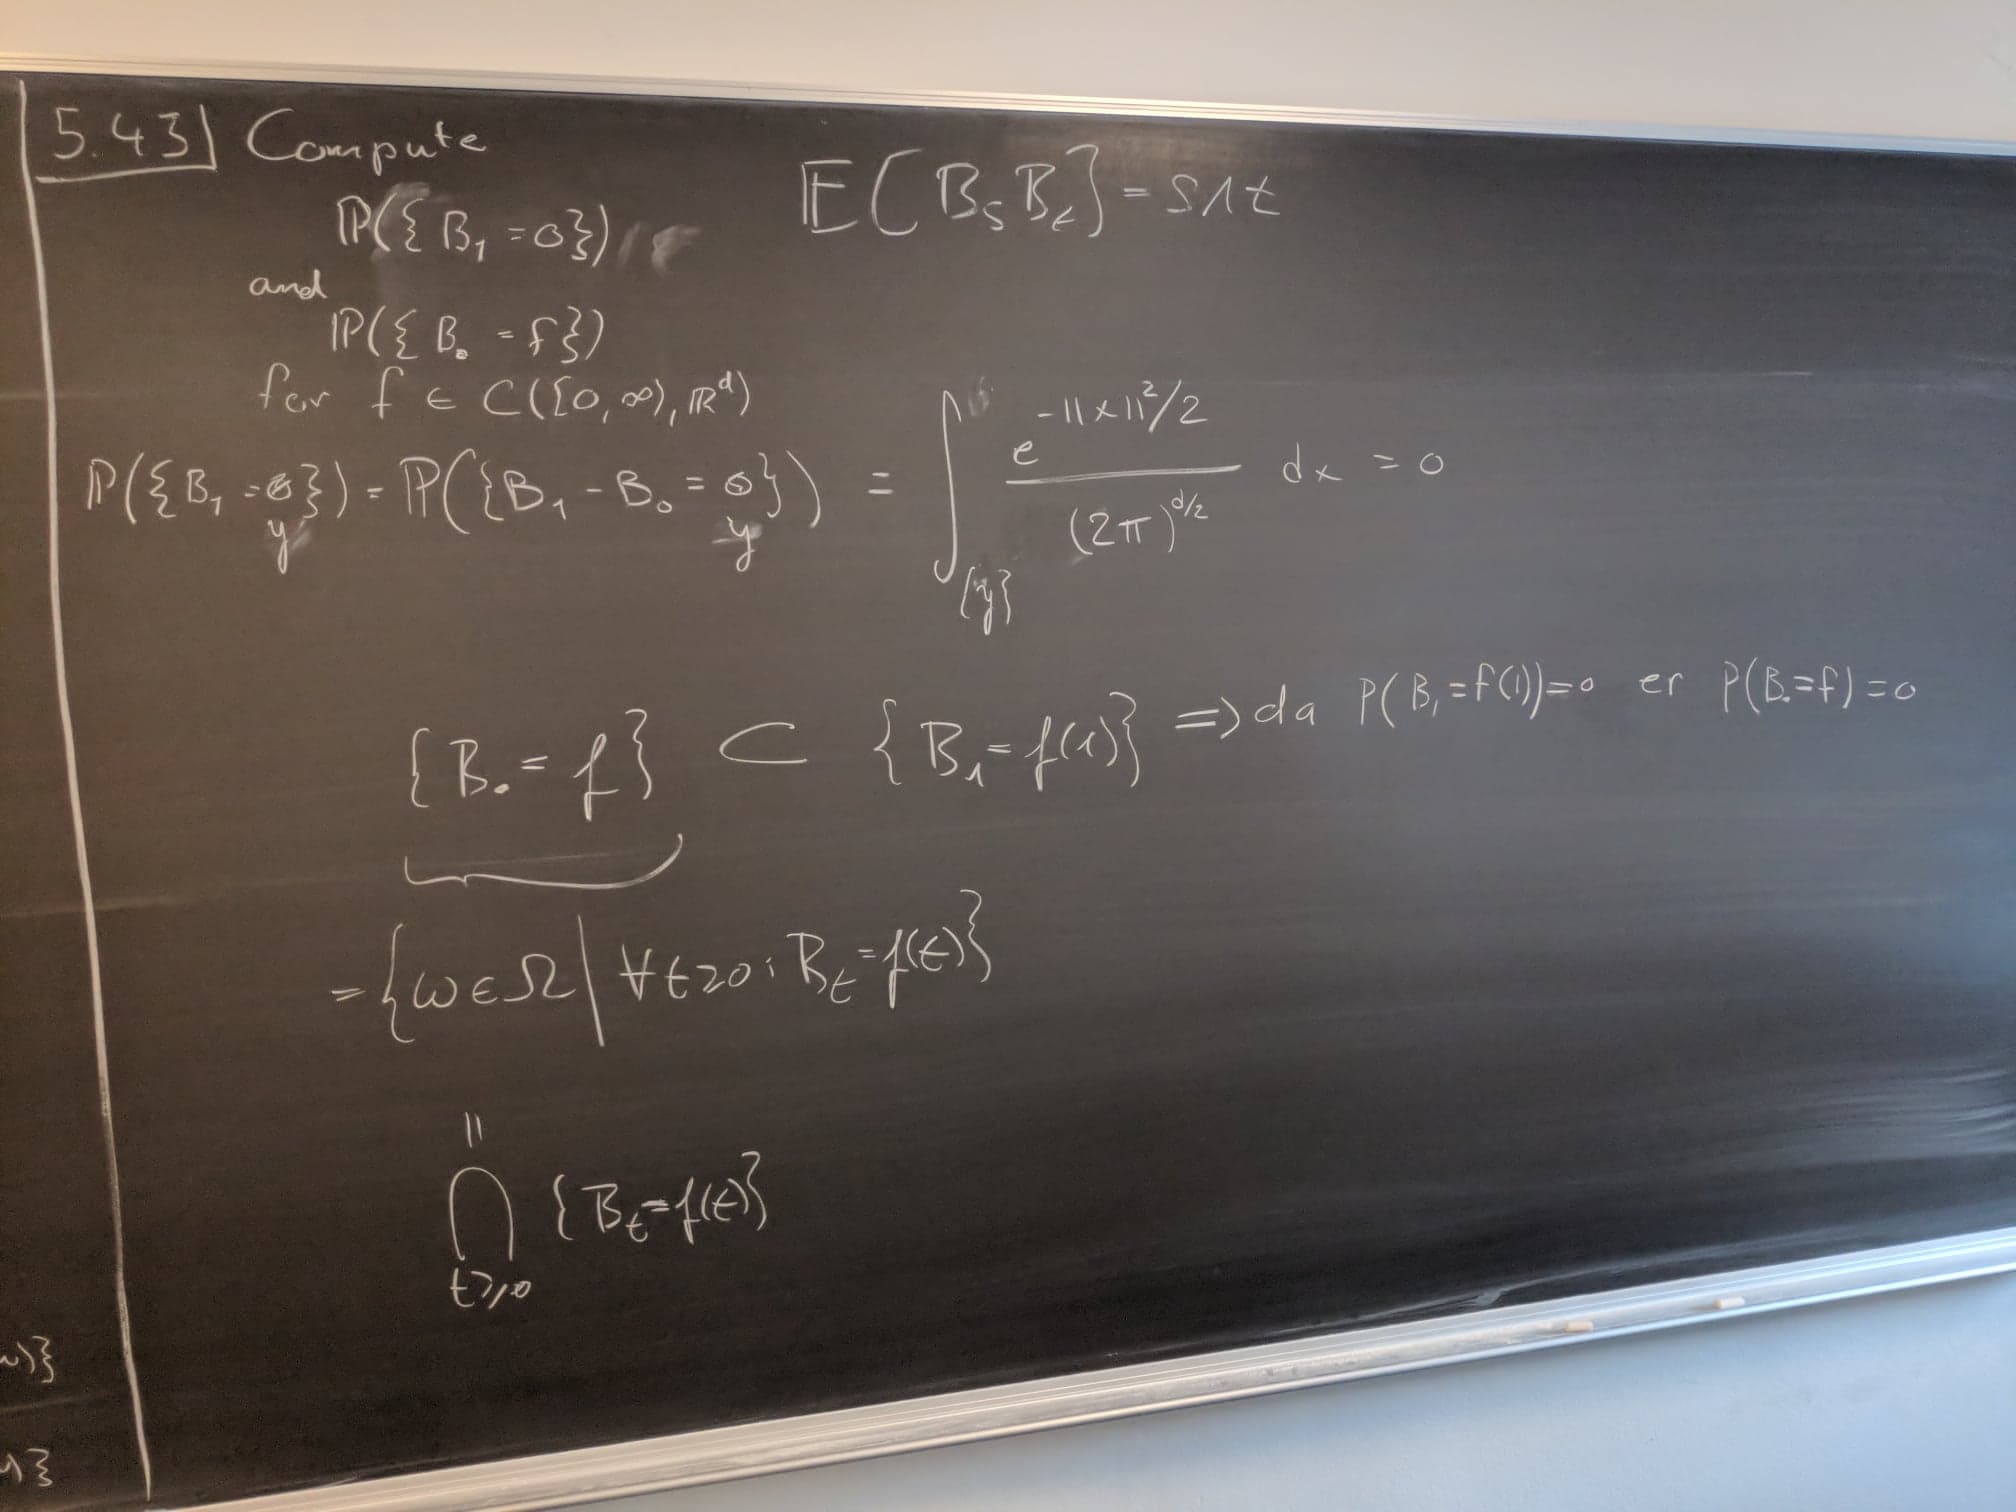 5.43) Compute
P({B₁ = 0})
E[B_s B_t] = s∧t
and
P({B. = f})
for f ∈ C([0,∞), ℝᵈ)
P({B₁ = y}) = P({B₁ - B₀ = y}) = ∫_{y} e^{-||x||²/2} / (2π)^{d/2} dx = 0
{B. = f} ⊂ {B₁ = f(1)} => da P(B₁ = f(1)) = 0 er P(B. = f) = 0
= {ω ∈ Ω | ∀t≥0: B_t = f(t)}
=
∩_{t≥0} {B_t = f(t)}
)}
)}